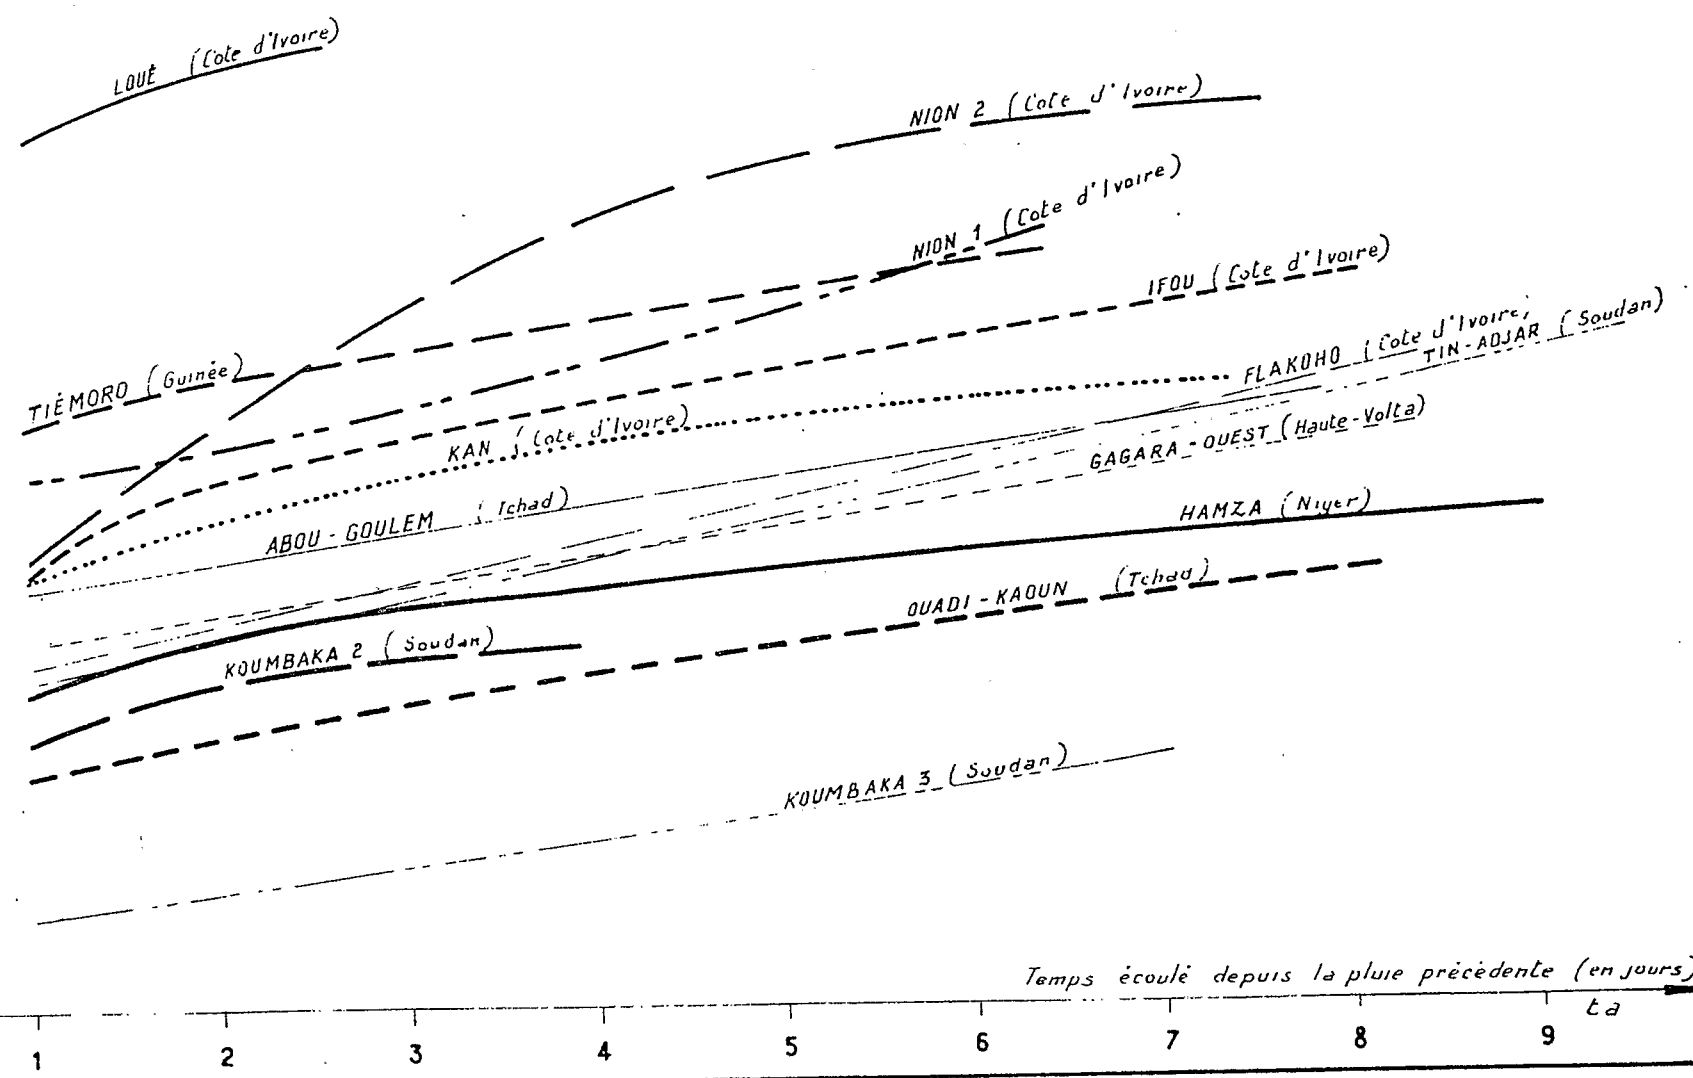 LOUÉ (Cote d'Ivoire)
NION 2 (Cote d'Ivoire)
NION 1 (Cote d'Ivoire)
IFOU (Cote d'Ivoire)
TIÉMORO (Guinée)
FLAKOHO (Cote d'Ivoire)
TIN-ADJAR (Soudan)
KAN (Cote d'Ivoire)
GAGARA-OUEST (Haute-Volta)
ABOU-GOULEM (Tchad)
HAMZA (Niger)
OUADI-KAOUN (Tchad)
KOUMBAKA 2 (Soudan)
KOUMBAKA 3 (Soudan)
Temps écoulé depuis la pluie précédente (en jours)
ta
1 2 3 4 5 6 7 8 9